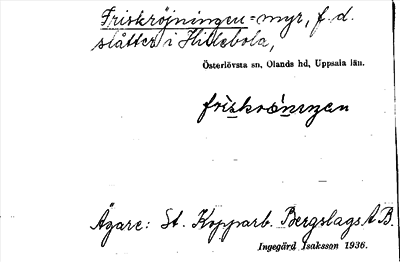 Friskröjningen = myr, f.d.
slåtter i Hillebola,
Österlövsta sn, Olands hd, Uppsala län.
friskrö̀ningen
Ägare: St. Kopparb. Bergslags A.B.
Ingegärd Isaksson 1936.